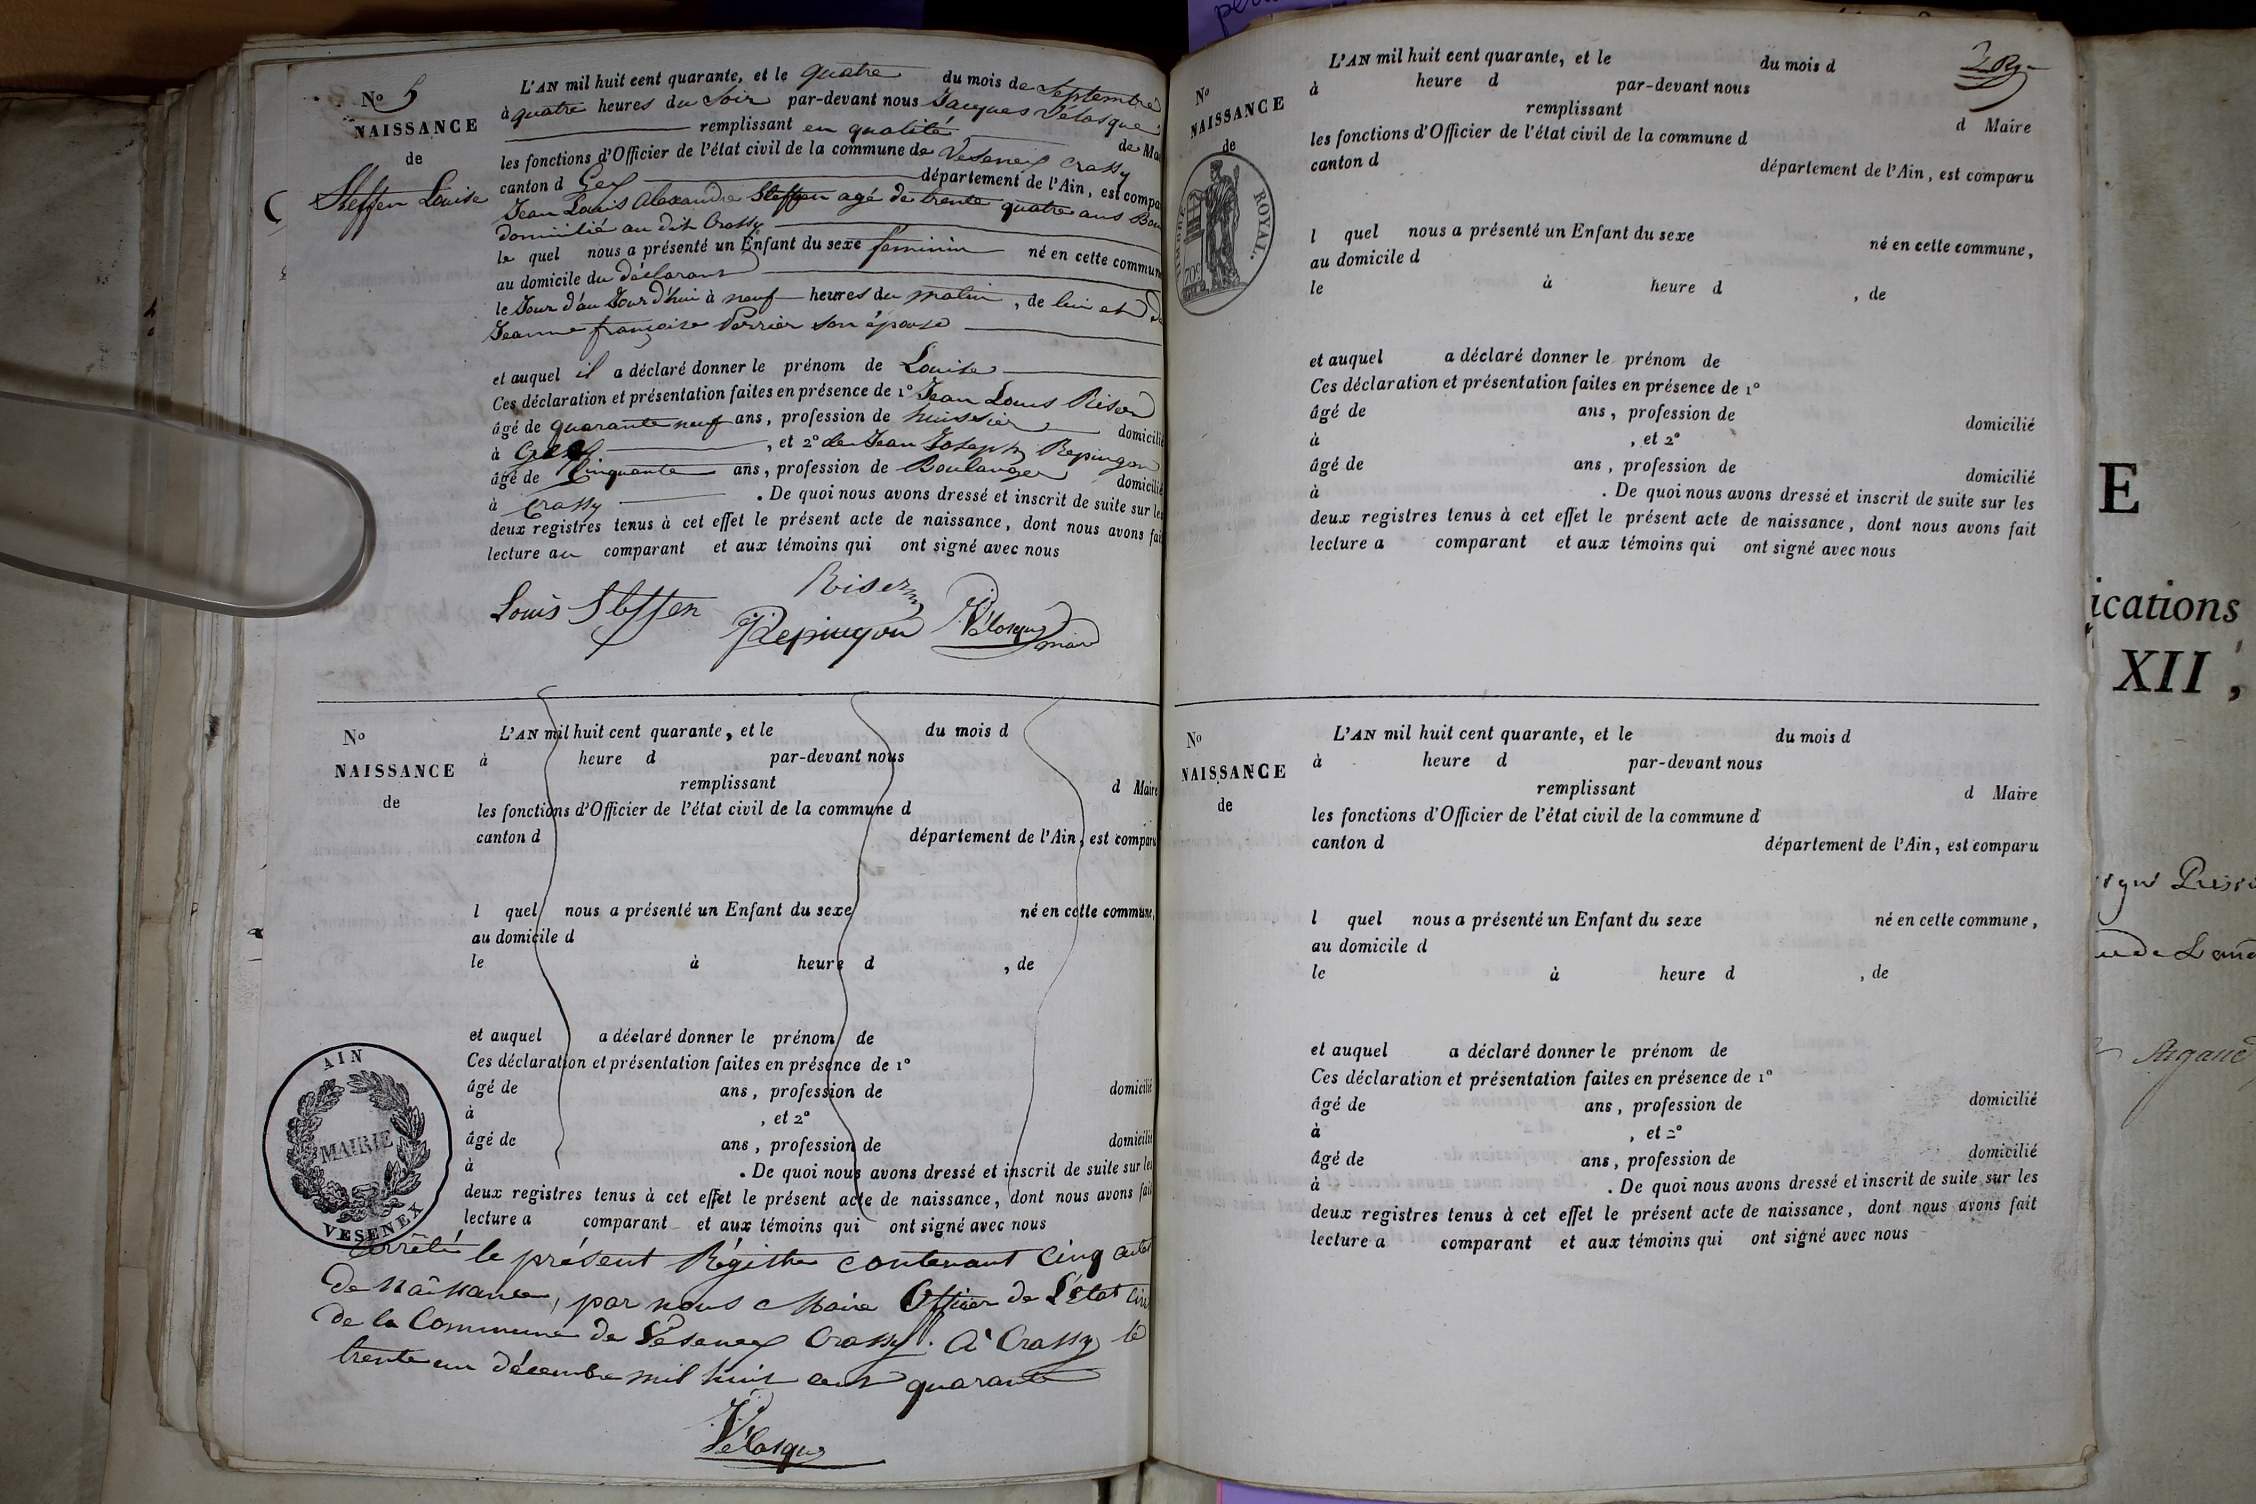 N° 5
NAISSANCE
de
Steffen Louise
L'AN mil huit cent quarante, et le quatre du mois de Septembre
à quatre heures du Soir par-devant nous Jacques Vélasque
remplissant en qualité de Mai
les fonctions d'Officier de l'état civil de la commune de Vesenex Crassy
canton d Gex département de l'Ain, est compa
Jean Louis Alexandre Steffen agé de trente quatre ans Bou
domicilié au dit Crassy
le quel nous a présenté un Enfant du sexe feminin né en cette commune
au domicile du déclarant
le Jour d'au Jour d'hui à neuf heures du matin, de lui et de
Jeanne françoise Perrier son épouse
et auquel il a déclaré donner le prénom de Louise
Ces déclaration et présentation faites en présence de 1° Jean Louis Riser
âgé de quarante neuf ans, profession de huissier domicilié
à Gex, et 2° de Jean Joseph Repingon
âgé de Cinquante ans, profession de Boulanger domicilié
à Crassy. De quoi nous avons dressé et inscrit de suite sur les
deux registres tenus à cet effet le présent acte de naissance, dont nous avons fait
lecture au comparant et aux témoins qui ont signé avec nous
Riser
Louis Steffen
Repingon
Vélasque
maire
N°
NAISSANCE
de
L'AN mil huit cent quarante, et le du mois d
à heure d par-devant nous
remplissant d Maire
les fonctions d'Officier de l'état civil de la commune d
canton d département de l'Ain, est comparu
l quel nous a présenté un Enfant du sexe né en cette commune,
au domicile d
le à heure d , de
et auquel a déclaré donner le prénom de
Ces déclaration et présentation faites en présence de 1°
âgé de ans, profession de domicilié
à , et 2°
âgé de ans, profession de domicilié
à . De quoi nous avons dressé et inscrit de suite sur les
deux registres tenus à cet effet le présent acte de naissance, dont nous avons fait
lecture a comparant et aux témoins qui ont signé avec nous
AIN
MAIRIE
VESENEX
Arrêté le présent Régistre contenant Cinq actes
de Naissance, par nous Maire Officier de L'état Civil
de la Commune de Vésenex Crassy. A Crassy le
trente un décembre mil huit cent quarante
Vélasque
N°
NAISSANCE
de
TIMBRE ROYAL.
70c
L'AN mil huit cent quarante, et le du mois d
à heure d par-devant nous
remplissant d Maire
les fonctions d'Officier de l'état civil de la commune d
canton d département de l'Ain, est comparu
l quel nous a présenté un Enfant du sexe né en cette commune,
au domicile d
le à heure d , de
et auquel a déclaré donner le prénom de
Ces déclaration et présentation faites en présence de 1°
âgé de ans, profession de domicilié
à , et 2°
âgé de ans, profession de domicilié
à . De quoi nous avons dressé et inscrit de suite sur les
deux registres tenus à cet effet le présent acte de naissance, dont nous avons fait
lecture a comparant et aux témoins qui ont signé avec nous
N°
NAISSANCE
de
L'AN mil huit cent quarante, et le du mois d
à heure d par-devant nous
remplissant d Maire
les fonctions d'Officier de l'état civil de la commune d
canton d département de l'Ain, est comparu
l quel nous a présenté un Enfant du sexe né en cette commune,
au domicile d
le à heure d , de
et auquel a déclaré donner le prénom de
Ces déclaration et présentation faites en présence de 1°
âgé de ans, profession de domicilié
à , et 2°
âgé de ans, profession de domicilié
à . De quoi nous avons dressé et inscrit de suite sur les
deux registres tenus à cet effet le présent acte de naissance, dont nous avons fait
lecture a comparant et aux témoins qui ont signé avec nous
E
ications
XII,